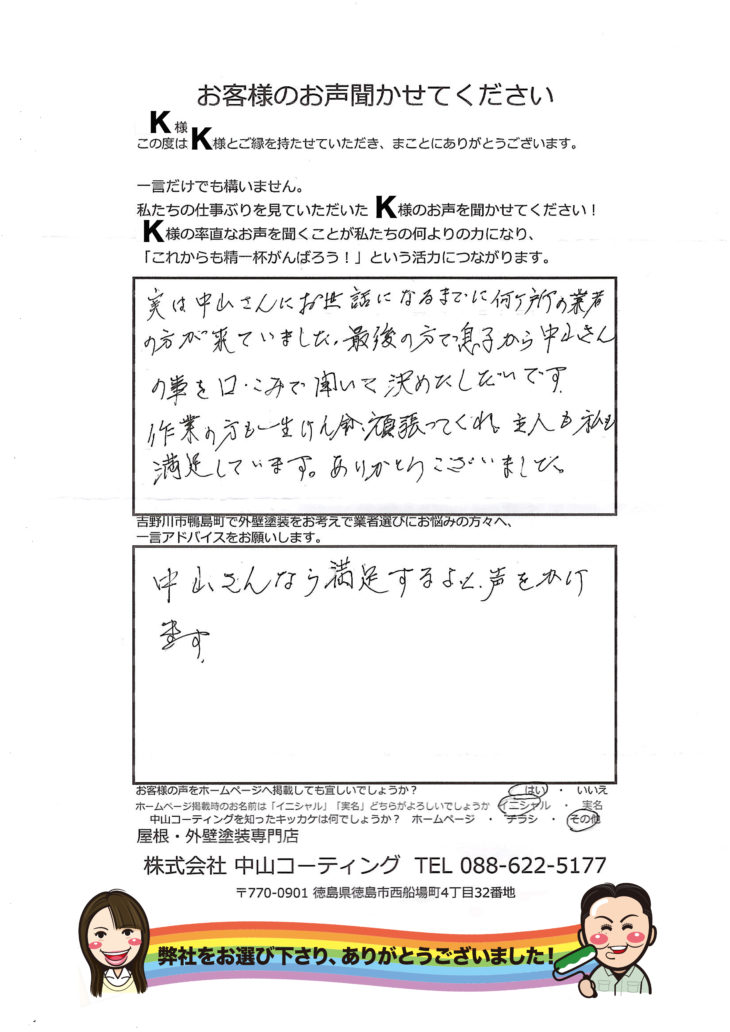 お客様のお声聞かせてください
K様
この度はK様とご縁を持たせていただき、まことにありがとうございます。
一言だけでも構いません。
私たちの仕事ぶりを見ていただいた K様のお声を聞かせてください！
K様の率直なお声を聞くことが私たちの何よりの力になり、
「これからも精一杯がんばろう！」という活力につながります。
実は中山さんにお世話になるまでに何ヶ所の業者
の方が来ていました。最後の方で息子から中山さん
の事を口・こみで聞いて決めたしだいです
作業の方も一生けん命頑張ってくれ。主人も私も
満足しています。ありがとうございました。
吉野川市鴨島町で外壁塗装をお考えで業者選びにお悩みの方々へ、
一言アドバイスをお願いします。
中山さんなら満足するよと、声をかけ
ます。
お客様の声をホームページへ掲載しても宜しいでしょうか？ はい ・ いいえ
ホームページ掲載時のお名前は「イニシャル」「実名」どちらがよろしいでしょうか イニシャル ・ 実名
中山コーティングを知ったキッカケは何でしょうか？ ホームページ ・ チラシ ・ その他
屋根・外壁塗装専門店
株式会社 中山コーティング TEL 088-622-5177
〒770-0901 徳島県徳島市西船場町4丁目32番地
弊社をお選び下さり、ありがとうございました！